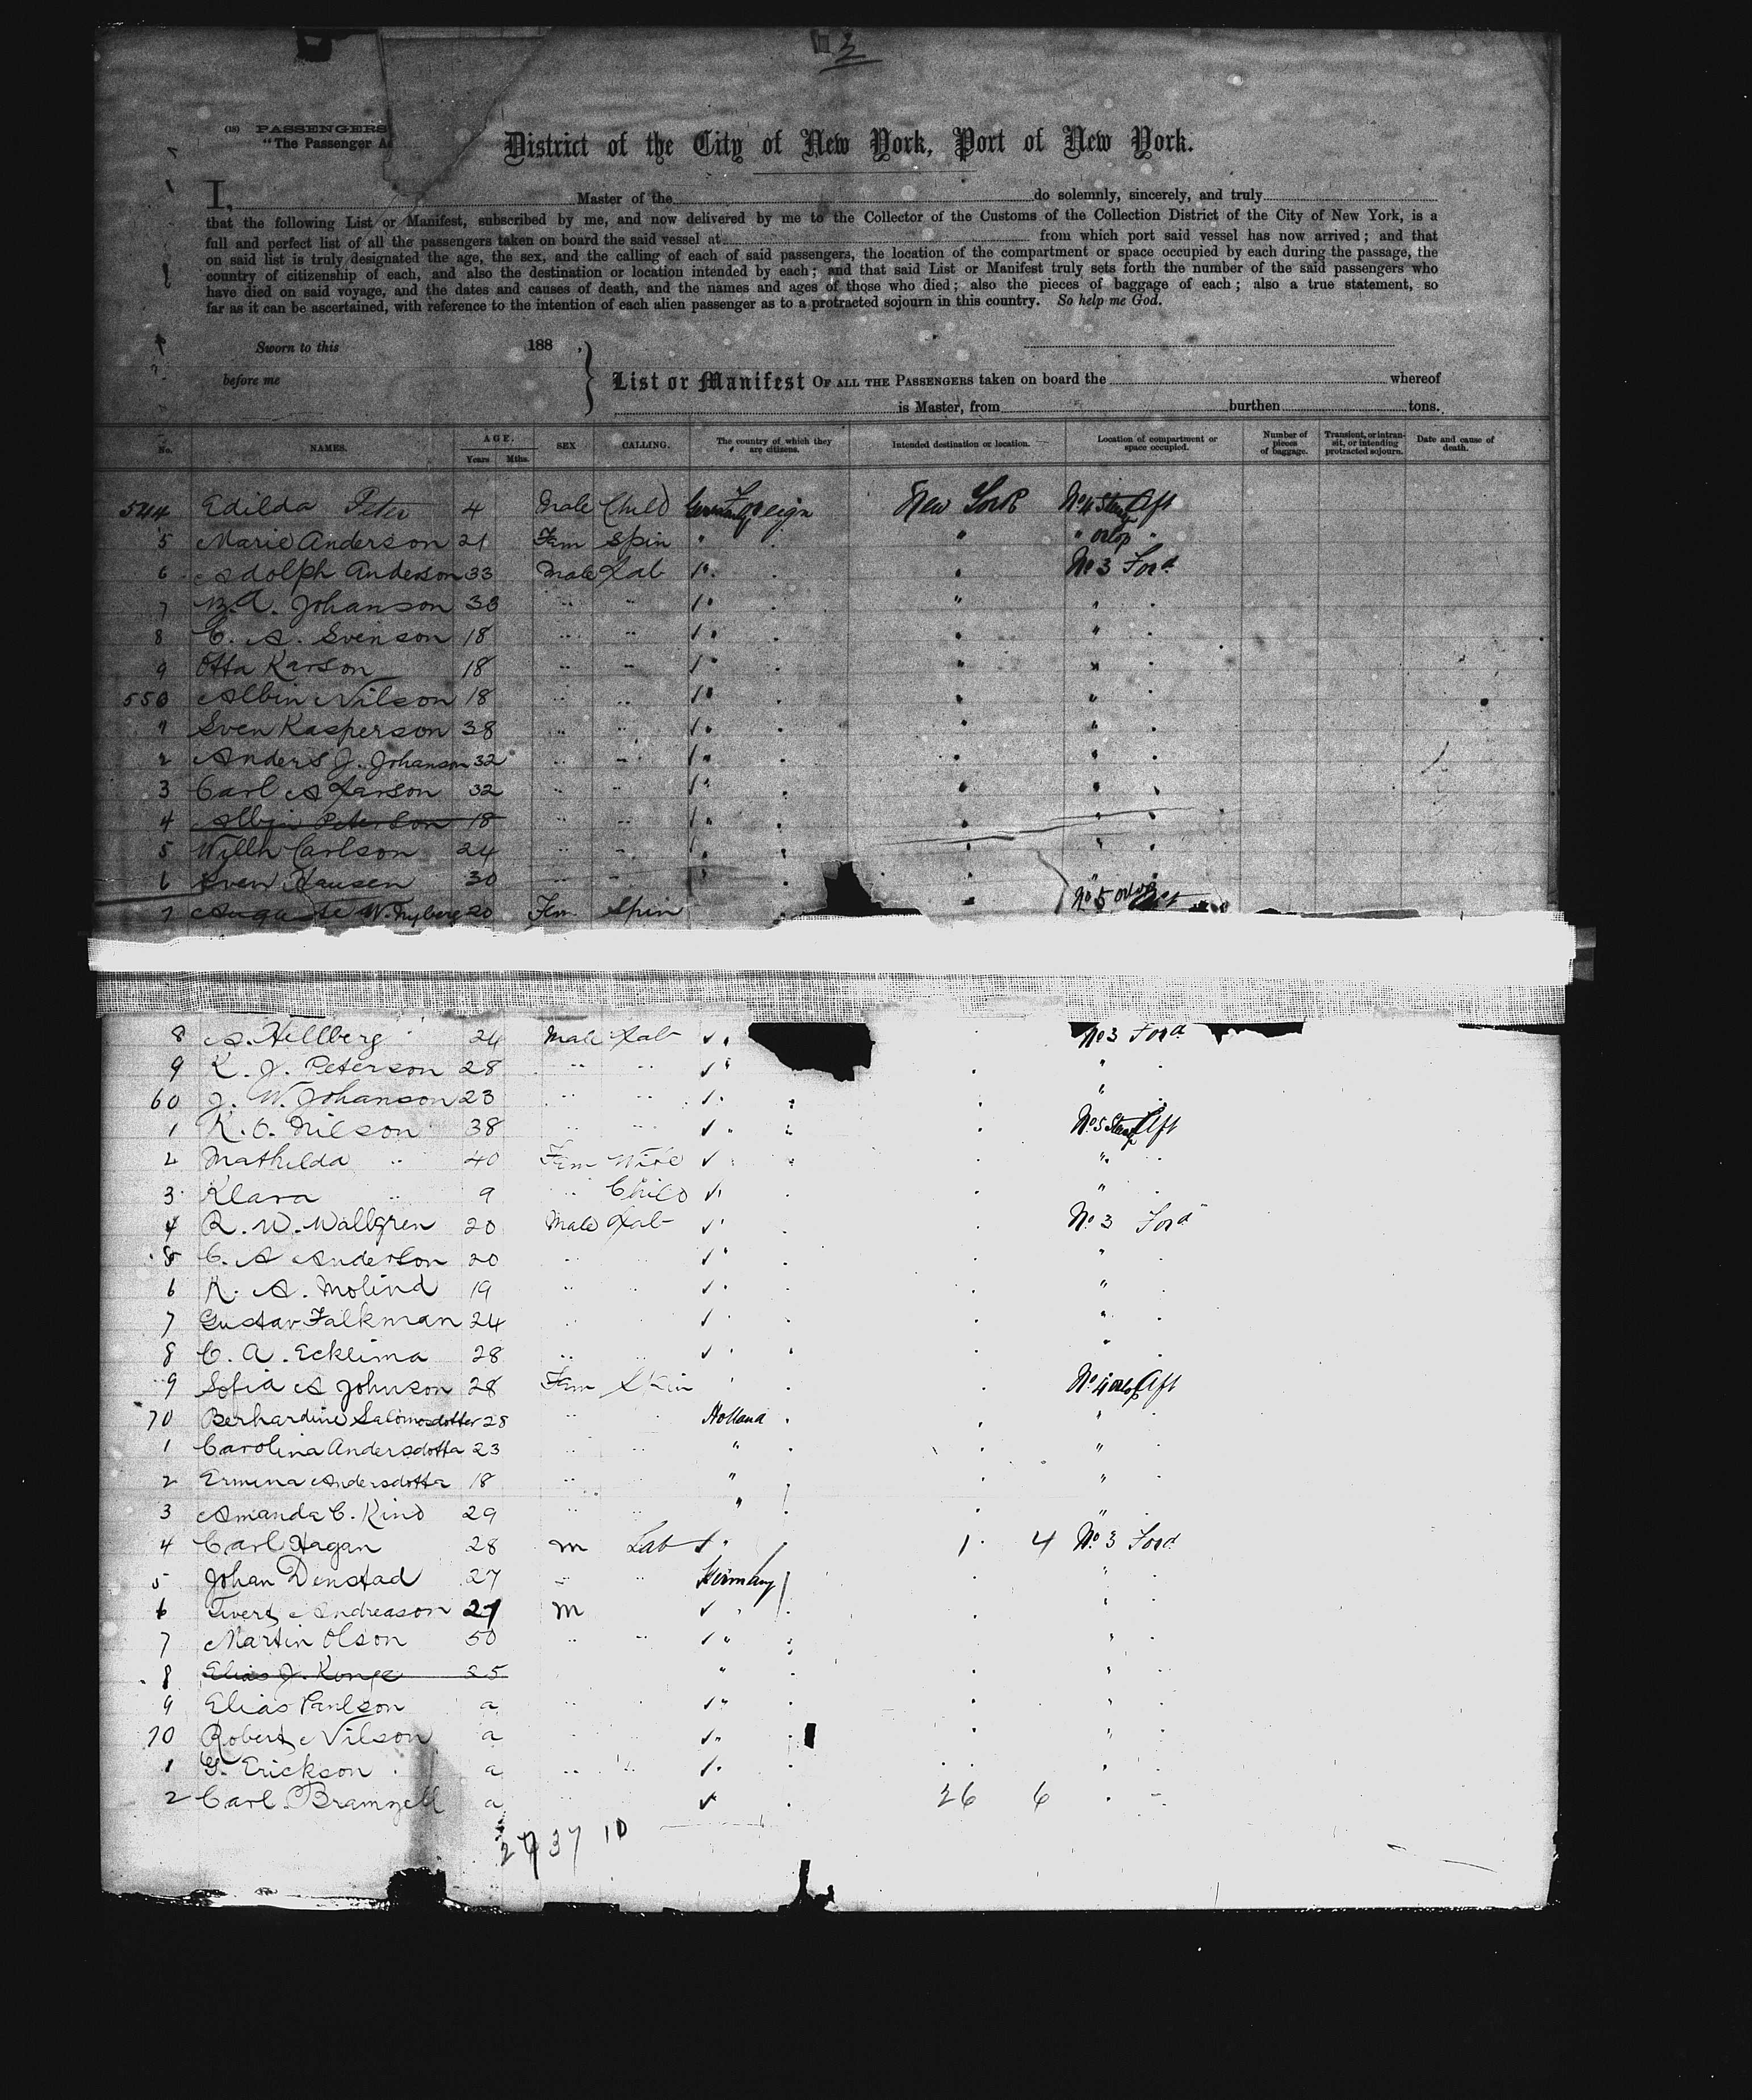 2
(18) PASSENGERS
"The Passenger Ac
District of the City of New York, Port of New York.
I, Master of the do solemnly, sincerely, and truly
that the following List or Manifest, subscribed by me, and now delivered by me to the Collector of the Customs of the Collection District of the City of New York, is a
full and perfect list of all the passengers taken on board the said vessel at from which port said vessel has now arrived; and that
on said list is truly designated the age, the sex, and the calling of each of said passengers, the location of the compartment or space occupied by each during the passage, the
country of citizenship of each, and also the destination or location intended by each; and that said List or Manifest truly sets forth the number of the said passengers who
have died on said voyage, and the dates and causes of death, and the names and ages of those who died; also the pieces of baggage of each; also a true statement, so
far as it can be ascertained, with reference to the intention of each alien passenger as to a protracted sojourn in this country. So help me God.
Sworn to this 188 ,
before me
List or Manifest OF ALL THE PASSENGERS taken on board the whereof
is Master, from burthen tons.
No. NAMES. AGE. Years Mths. SEX CALLING. The country of which they are citizens. Intended destination or location. Location of compartment or space occupied. Number of pieces of baggage. Transient, or intransit, or intending protracted sojourn. Date and cause of death.
544 Edilda Peter 4 Male Child New York No 4 Aft
5 Marie Anderson 21 Fem Spin " " " orlop "
6 Adolph Anderson 33 Male Lab " " No 3 Ford
7 Johanson 38 " " " " "
8 C. A. Svenson 18 " " " " "
9 Otta Karson 18 " " " " "
550 Albin Nilson 18 " " " " "
1 Sven Kasperson 38 " " " " "
2 Anders J. Johanson 32 " " " " "
3 Carl A Larson 32 " " " " "
4 Albin Peterson 18 " " " " "
5 Willh Carlson 24 " " " " "
6 Sven Hausen 30 " " " "
7 Auguste W. Nyberg 20 Fem Spin No 5 orlop Aft
8 A. Hellberg 24 Male Lab " No 3 Ford
9 K. J. Peterson 28 " " " "
60 J. W. Johanson 23 " " " "
1 K. O. Nilson 38 " " " No 5 Aft
2 Mathilda " 40 Fem Wife " "
3 Klara " 9 " Child " "
4 R. W. Wallgren 20 Male Lab " No 3 Ford
5 C. A Anderson 20 " " " "
6 K. A. Molind 19 " " " "
7 Gustav Falkman 24 " " " "
8 C. A. Ecklima 28 " " " "
9 Sofia A Johnson 28 Fem Spin " No 4 orlop Aft
70 Berhardine Salomosdotter 28 " " Holland "
1 Carolina Andersdotta 23 " " " "
2 Ermina Andersdotta 18 " " "
3 Amanda C. Kind 29 " " " "
4 Carl Hagan 28 m Lab " 1 4 No 3 Ford
5 Johan Denstad 27 " " Germany "
6 Andreason 27 m " "
7 Martin Olson 50 " " " "
8 Elias J. Konge 25 " "
9 Elias Paulson a " " "
70 Robert Nilson a " "
1 G. Erickson a " " " "
2 Carl Bramzell a " " 26 6 " "
37 10